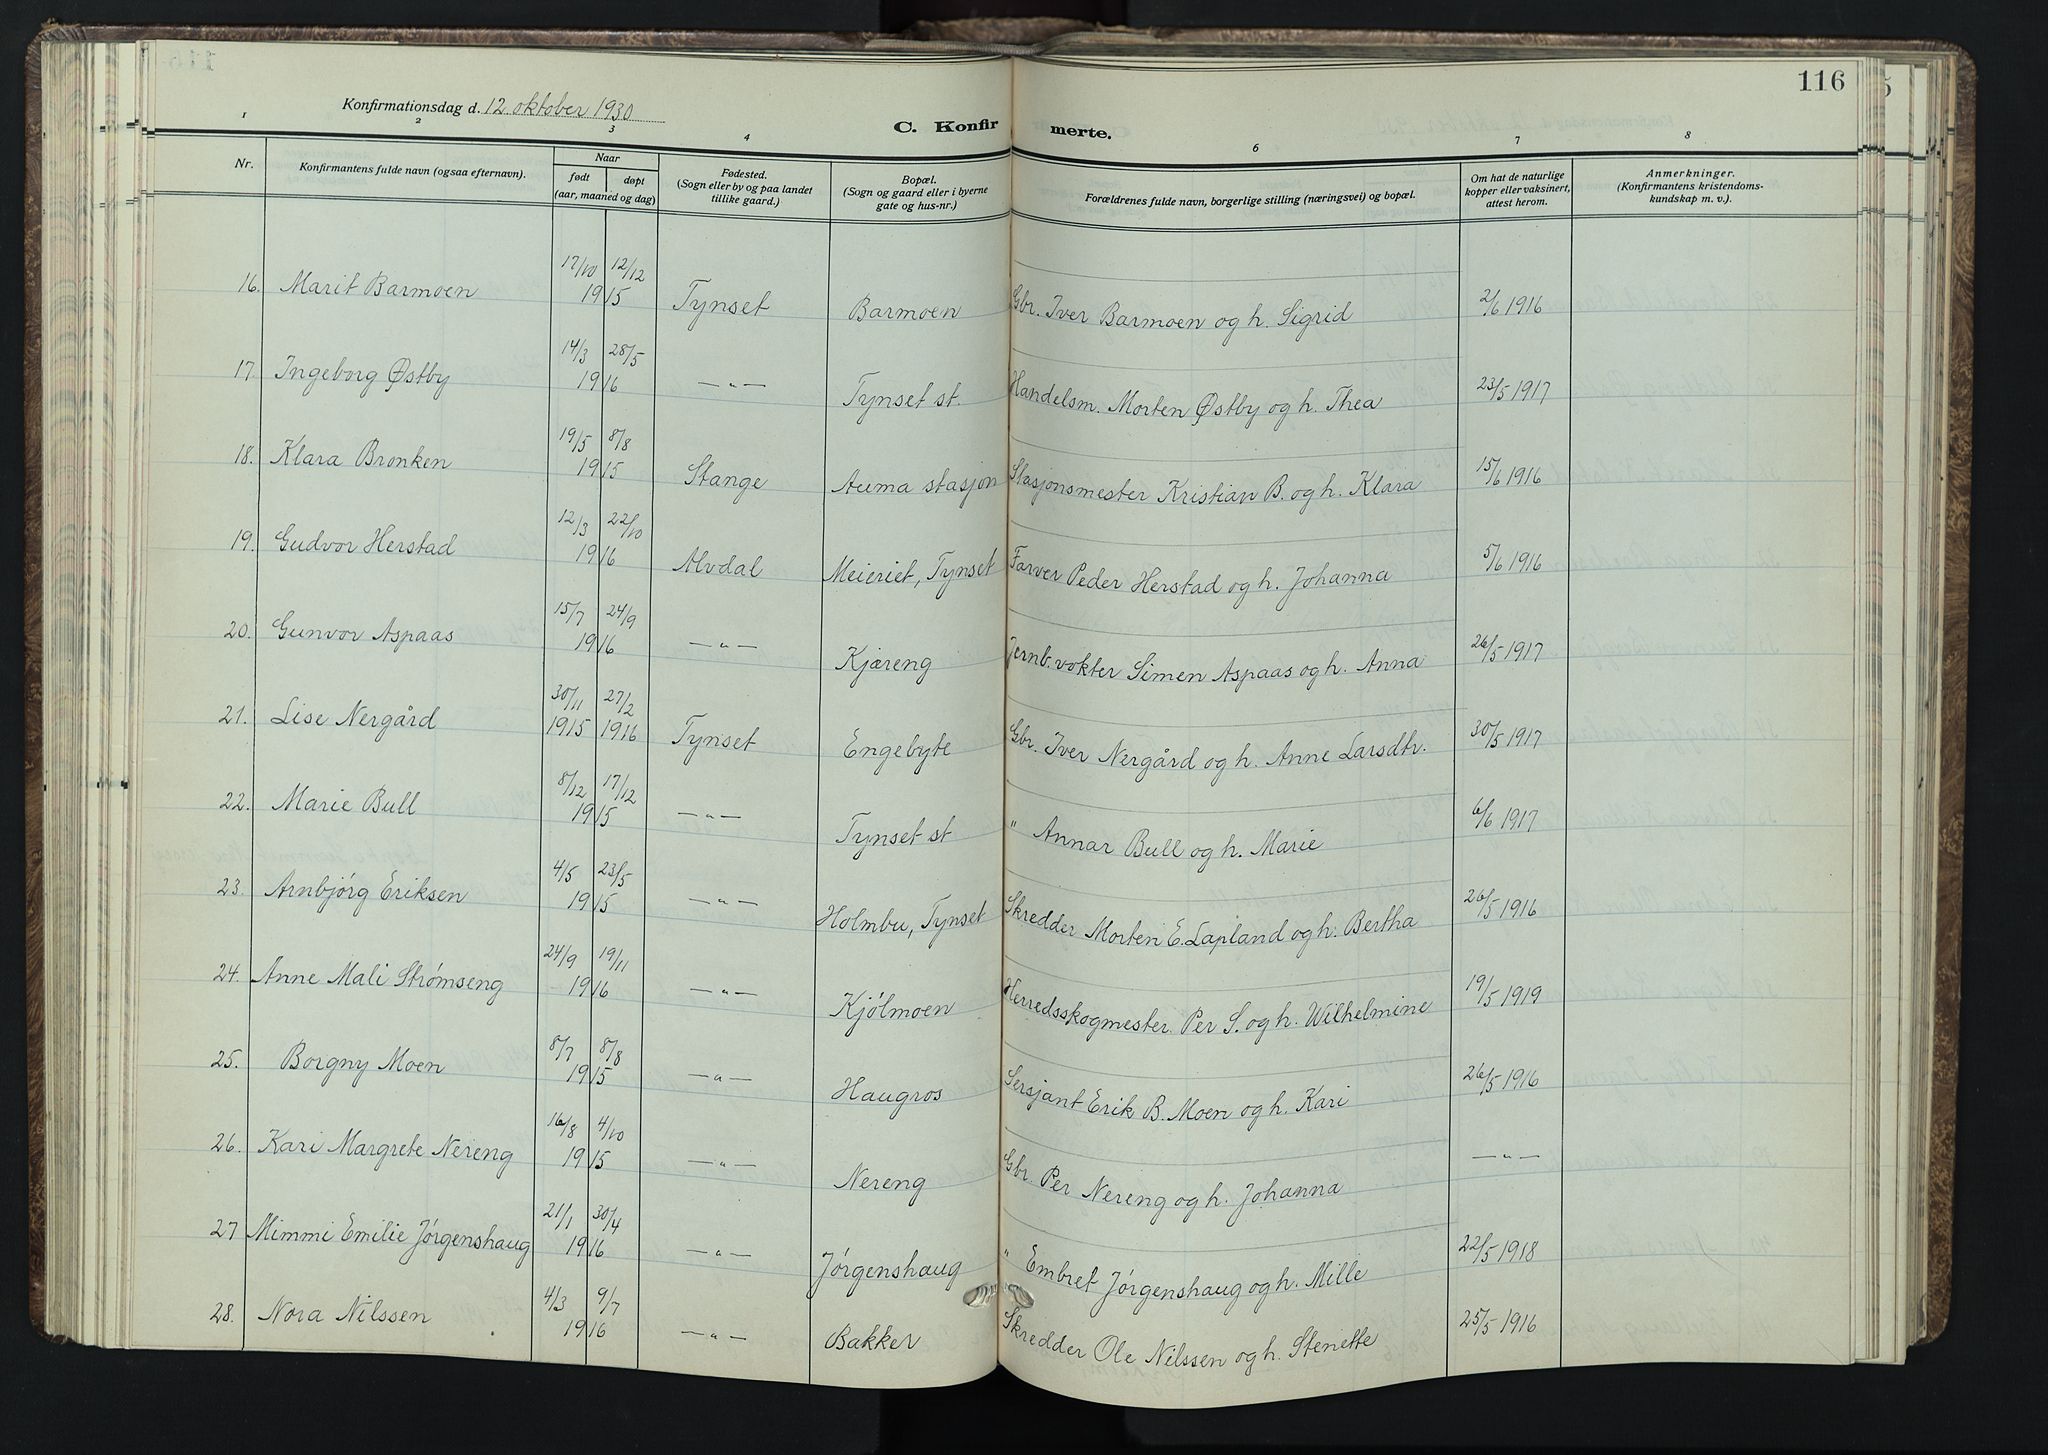 116
Konfirmationsdag d. 12. oktober 1930
C. Konfirmerte.
1 2 3 4 6 7 8
Nr. Konfirmantens fulde navn (ogsaa efternavn). Naar født døpt (aar, maaned og dag) Fødested. (Sogn eller by og paa landet tillike gaard.) Bopæl. (Sogn og gaard eller i byerne gate og hus-nr.) Forældrenes fulde navn, borgerlige stilling (næringsvei) og bopæl. Om hat de naturlige kopper eller vaksinert, attest herom. Anmerkninger. (Konfirmantens kristendomskundskap m. v.).
16. Marit Barmoen 17/10 12/12 1915 Tynset Barmoen Gbr. Iver Barmoen og h. Sigrid 2/6 1916
17. Ingeborg Østby 14/3 28/5 1916 —"— Tynset st. Handelsm. Morten Østby og h. Thea 23/5 1917
18. Klara Bronken 19/5 8/8 1915 Stange Auma stasjon Stasjonsmester Kristian B. og h. Klara 15/6 1916
19. Gudvor Herstad 12/3 22/10 1916 Alvdal Meieriet, Tynset Farver Peder Herstad og h. Johanna 5/6 1916
20. Gunvor Aspaas 15/7 24/9 1916 —"— Kjæreng Jernb.vokter Simen Aspaas og h. Anna 26/5 1917
21. Lise Nergård 30/11 1915 27/2 1916 Tynset Engebyte Gbr. Iver Nergård og h. Anne Larsdtr. 30/5 1917
22. Marie Bull 8/12 17/12 1915 —"— Tynset st " Annar Bull og h. Marie 6/6 1917
23. Arnbjörg Eriksen 4/5 23/5 1915 —"— Holmbu, Tynset Skredder Morten E. Lapland og h. Bertha 26/5 1916
24. Anne Mali Strömseng 24/9 19/11 1916 —"— Kjölmoen Herredsskogmester Per S. og h. Wilhelmine 19/5 1919
25. Borgny Moen 8/7 8/8 1915 —"— Haugros Sersjant Erik B. Moen og h. Kari 26/5 1916
26. Kari Margrete Nereng 16/8 4/10 1915 —"— Nereng Gbr. Per Nereng og h. Johanna —"—
27 Mimmi Emilie Jörgenshaug 21/1 30/4 1916 —"— Jörgenshaug " Embret Jörgenshaug og h. Mille 22/5 1918
28. Nora Nilssen 4/3 9/7 1916 —"— Bakker Skredder Ole Nilssen og h. Stenette 25/5 1916